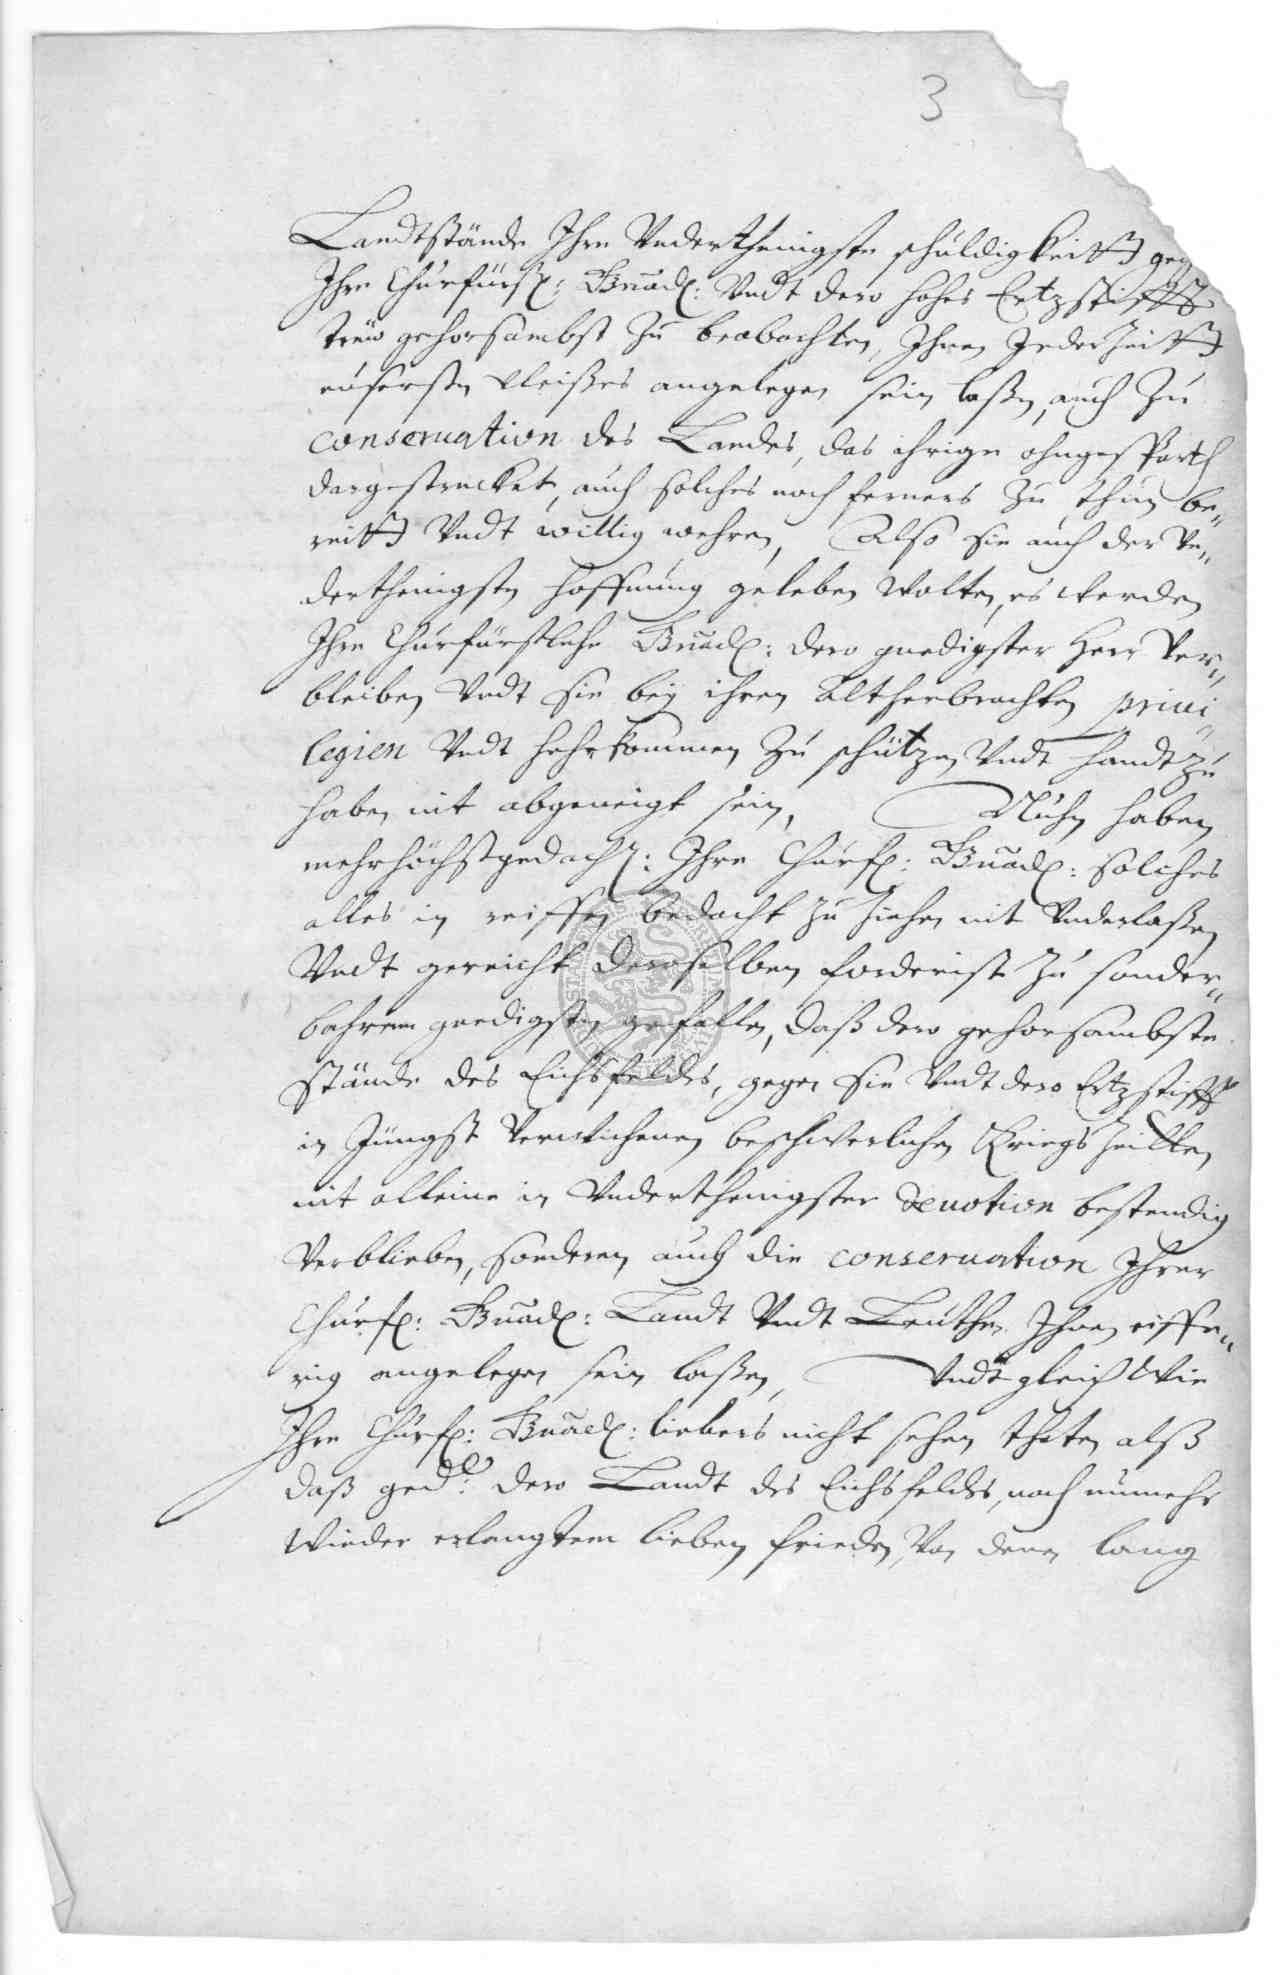 3
Landtstände Ihre Vnderthenigste schuldigkeitt geg
Ihre Churfürstl: Gnad: Vndt dero hohes Ertzstifft
trew gehorsambst zu beobachten, Ihnen Jederzeitt
eusersten fleißes angelegen sein laßen, auch zu
conseruation des Landes, das ihrige ohngespart
dargestrecket, auch solches noch ferners zu thun be„
reitt Vndt willig wehren, Also sie auch der Vn„
derthenigsten hoffnung geleben wolten, es werden
Ihre Churfürstliche Gnad: dero gnedigster Herr Ver„
bleiben Vndt sie bey ihren altherbrachten priui„
legien Vndt hehrkommen zu schützen Vndt handt zu
haben nit abgeneigt sein, Nuhn haben
mehrhöchstgedacht: Ihre Churfl: Gnad: solches
alles in reiffen bedacht zu ziehen nit Vnderlaßen
Vndt gereicht deroselben forderist zu sonder„
bahrem gnedigsten gefallen, daß dero gehorsambste
stände des Eichsfeldes, gegen sie Vndt dero Ertzstifft
in Jüngst verwichenen beschwerlichen Kriegs Zeitten
nit alleine in Vnderthenigster deuotion bestendig
Verblieben, sonderen auch die conseruation Ihrer
Churfl: Gnad: Landt Vndt Leuthe Ihnen eiffe„
rig angelegen sein laßen, Vndt gleich Wie
Ihre Churfl: Gnad: liebers nicht sehen theten alß
daß ged: dero Landt des Eichsfeldes, nach nunmehr
Wieder erlangtem lieben frieden, Von denen lang